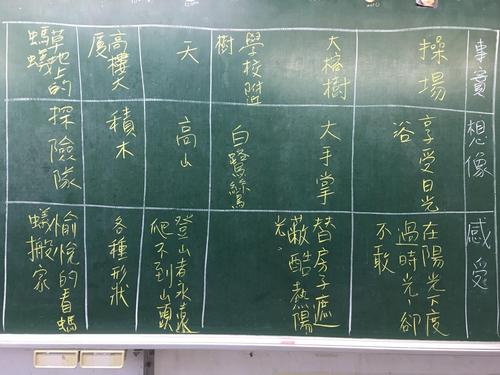 事實
想像
感受
操場
享受日光
浴
在陽光下度
過時光,卻
不敢
大榕樹
大手掌
替房子遮
蔽酷熱陽
光。
學校附
樹
白鷺鷥
天
高山
登山者永遠
爬不到山頭
高樓大
廈
積木
各種形狀
草地上的
螞蟻
探險隊
愉悅的看螞
蟻搬家